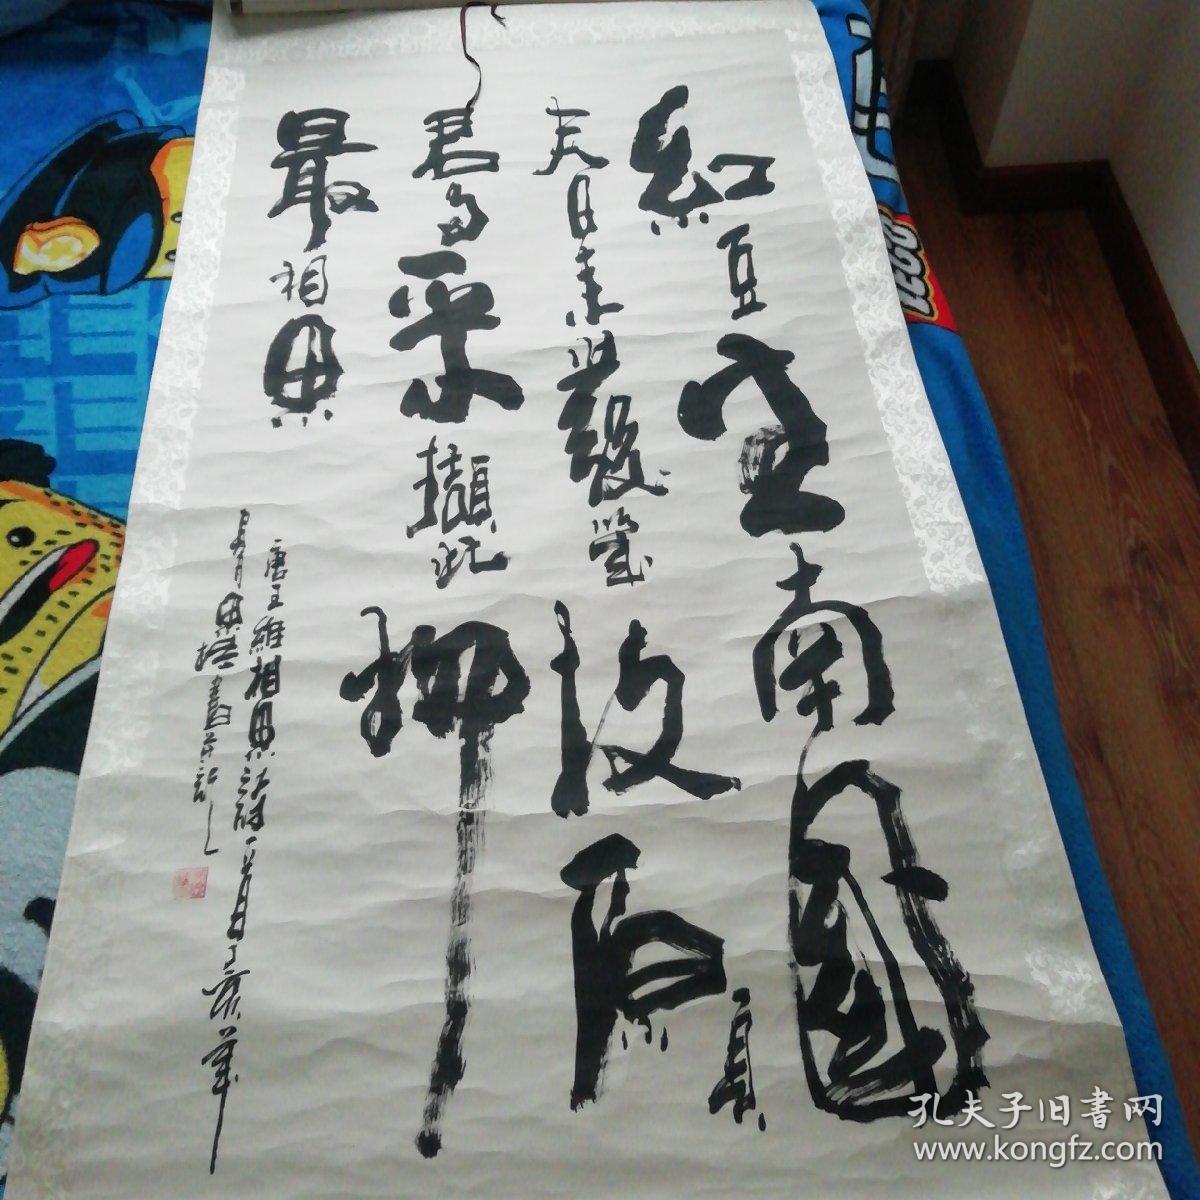 紅豆生南國
春来發幾枝願
君多采擷此物
最相思
唐王維相思詩一首丁亥年
書并記
LEGO
孔夫子旧書网
www.kongfz.com